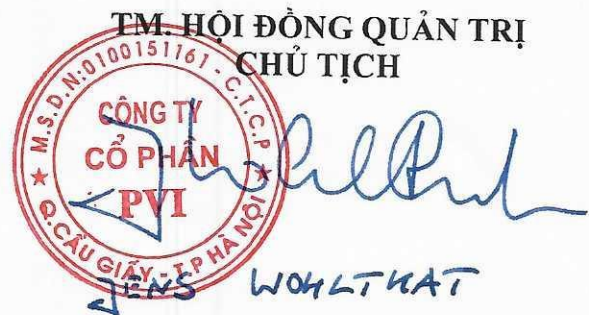 TM. HỘI ĐỒNG QUẢN TRỊ
CHỦ TỊCH
M.S.D.N:0100151161 - C.T.C.P
CÔNG TY
CỔ PHẦN
PVI
Q.CẦU GIẤY - T.P HÀ NỘI
JENS WOHLTHAT